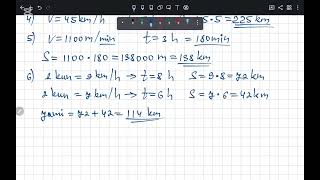 4) V = 45 km/h 5 · 5 = 225 km
5) V = 1100 m/min t = 3 h = 180 min
S = 1100 · 180 = 198000 m = 198 km
6) 1 kun = 9 km/h → t = 8 h S = 9 · 8 = 72 km
2 kun = 7 km/h → t = 6 h S = 7 · 6 = 42 km
jami = 72 + 42 = 114 km